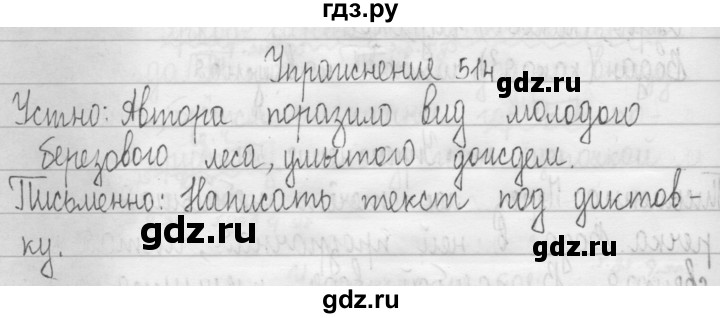 гдз.ру
Упражнение 514
gdz.ru
Устно: Автора поразило вид молодого
березового леса, умытого дождем.
Письменно: Написать текст под диктов-
ку.
gdz.ru
gdz.ru
gdz.ru